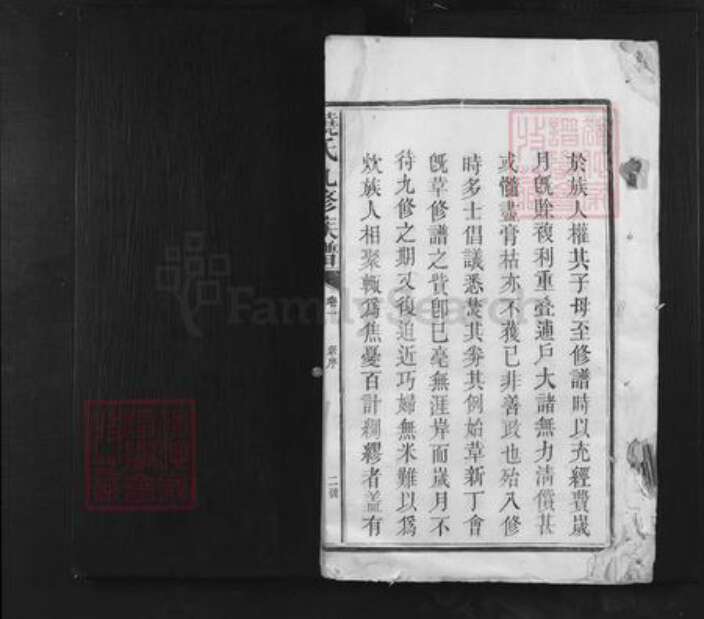 於族人權其子母至修譜時以充經費歲
月旣賖複利重疊連戶大諸無力淸償甚
或髓盡膏枯亦不獲已非善政也殆入修
時多士倡議悉焚其券其例始革新丁會
旣革修譜之費卽已毫無涯岸而歲月不
待九修之期又復迫近巧婦無米難以爲
炊族人相聚輒爲焦憂百計綢繆者蓋有
饒氏九修族譜
卷一
序
二號
FamilySearch